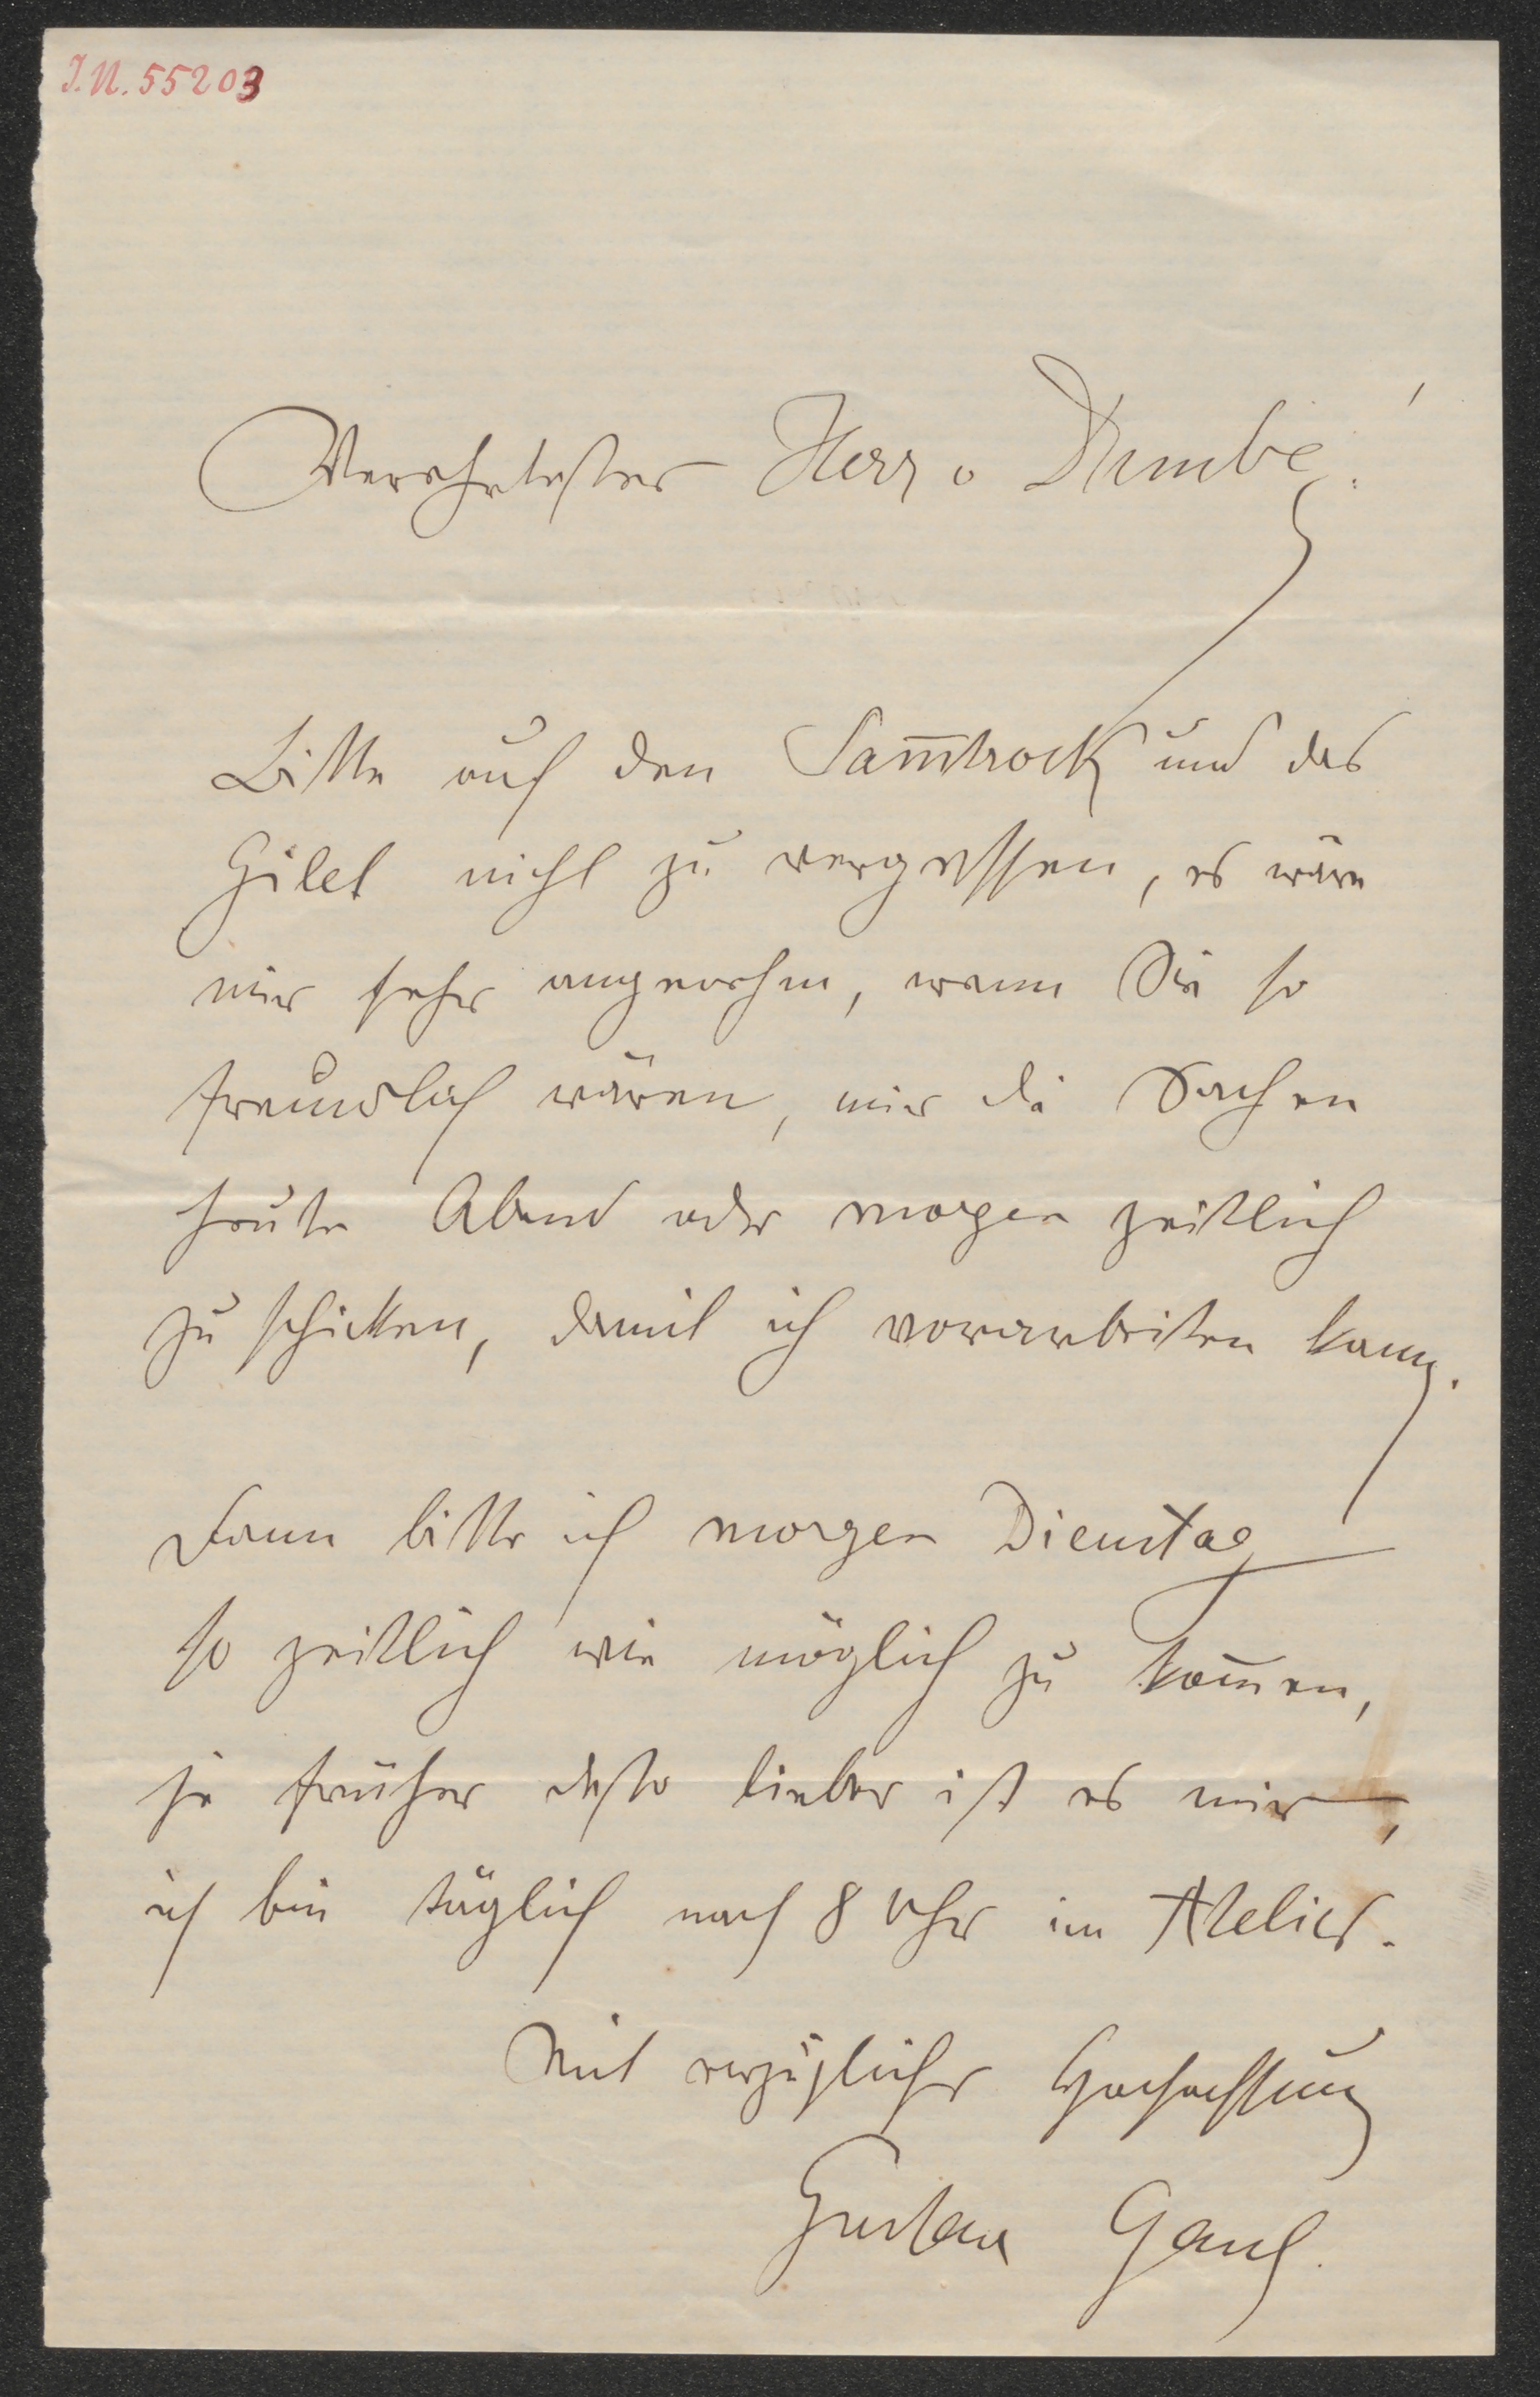 I.N. 55203
Verehrtester Herr v Dumba!
Bitte auf den Sam̅trock und das
Gilet nicht zu vergessen, es wäre
mir sehr angenehm, wenn Sie so
freundlich wären, mir die Sachen
heute Abend oder morgen zeitlich
zu schicken, damit ich vorarbeiten kann.
Dann bitte ich morgen Dienstag
so zeitlich wie möglich zu kom̅en,
je früher desto lieber ist es mir,
ich bin täglich nach 8 Uhr im Atelier.
Mit vorzüglicher Hochachtung
Gustav Gaul.